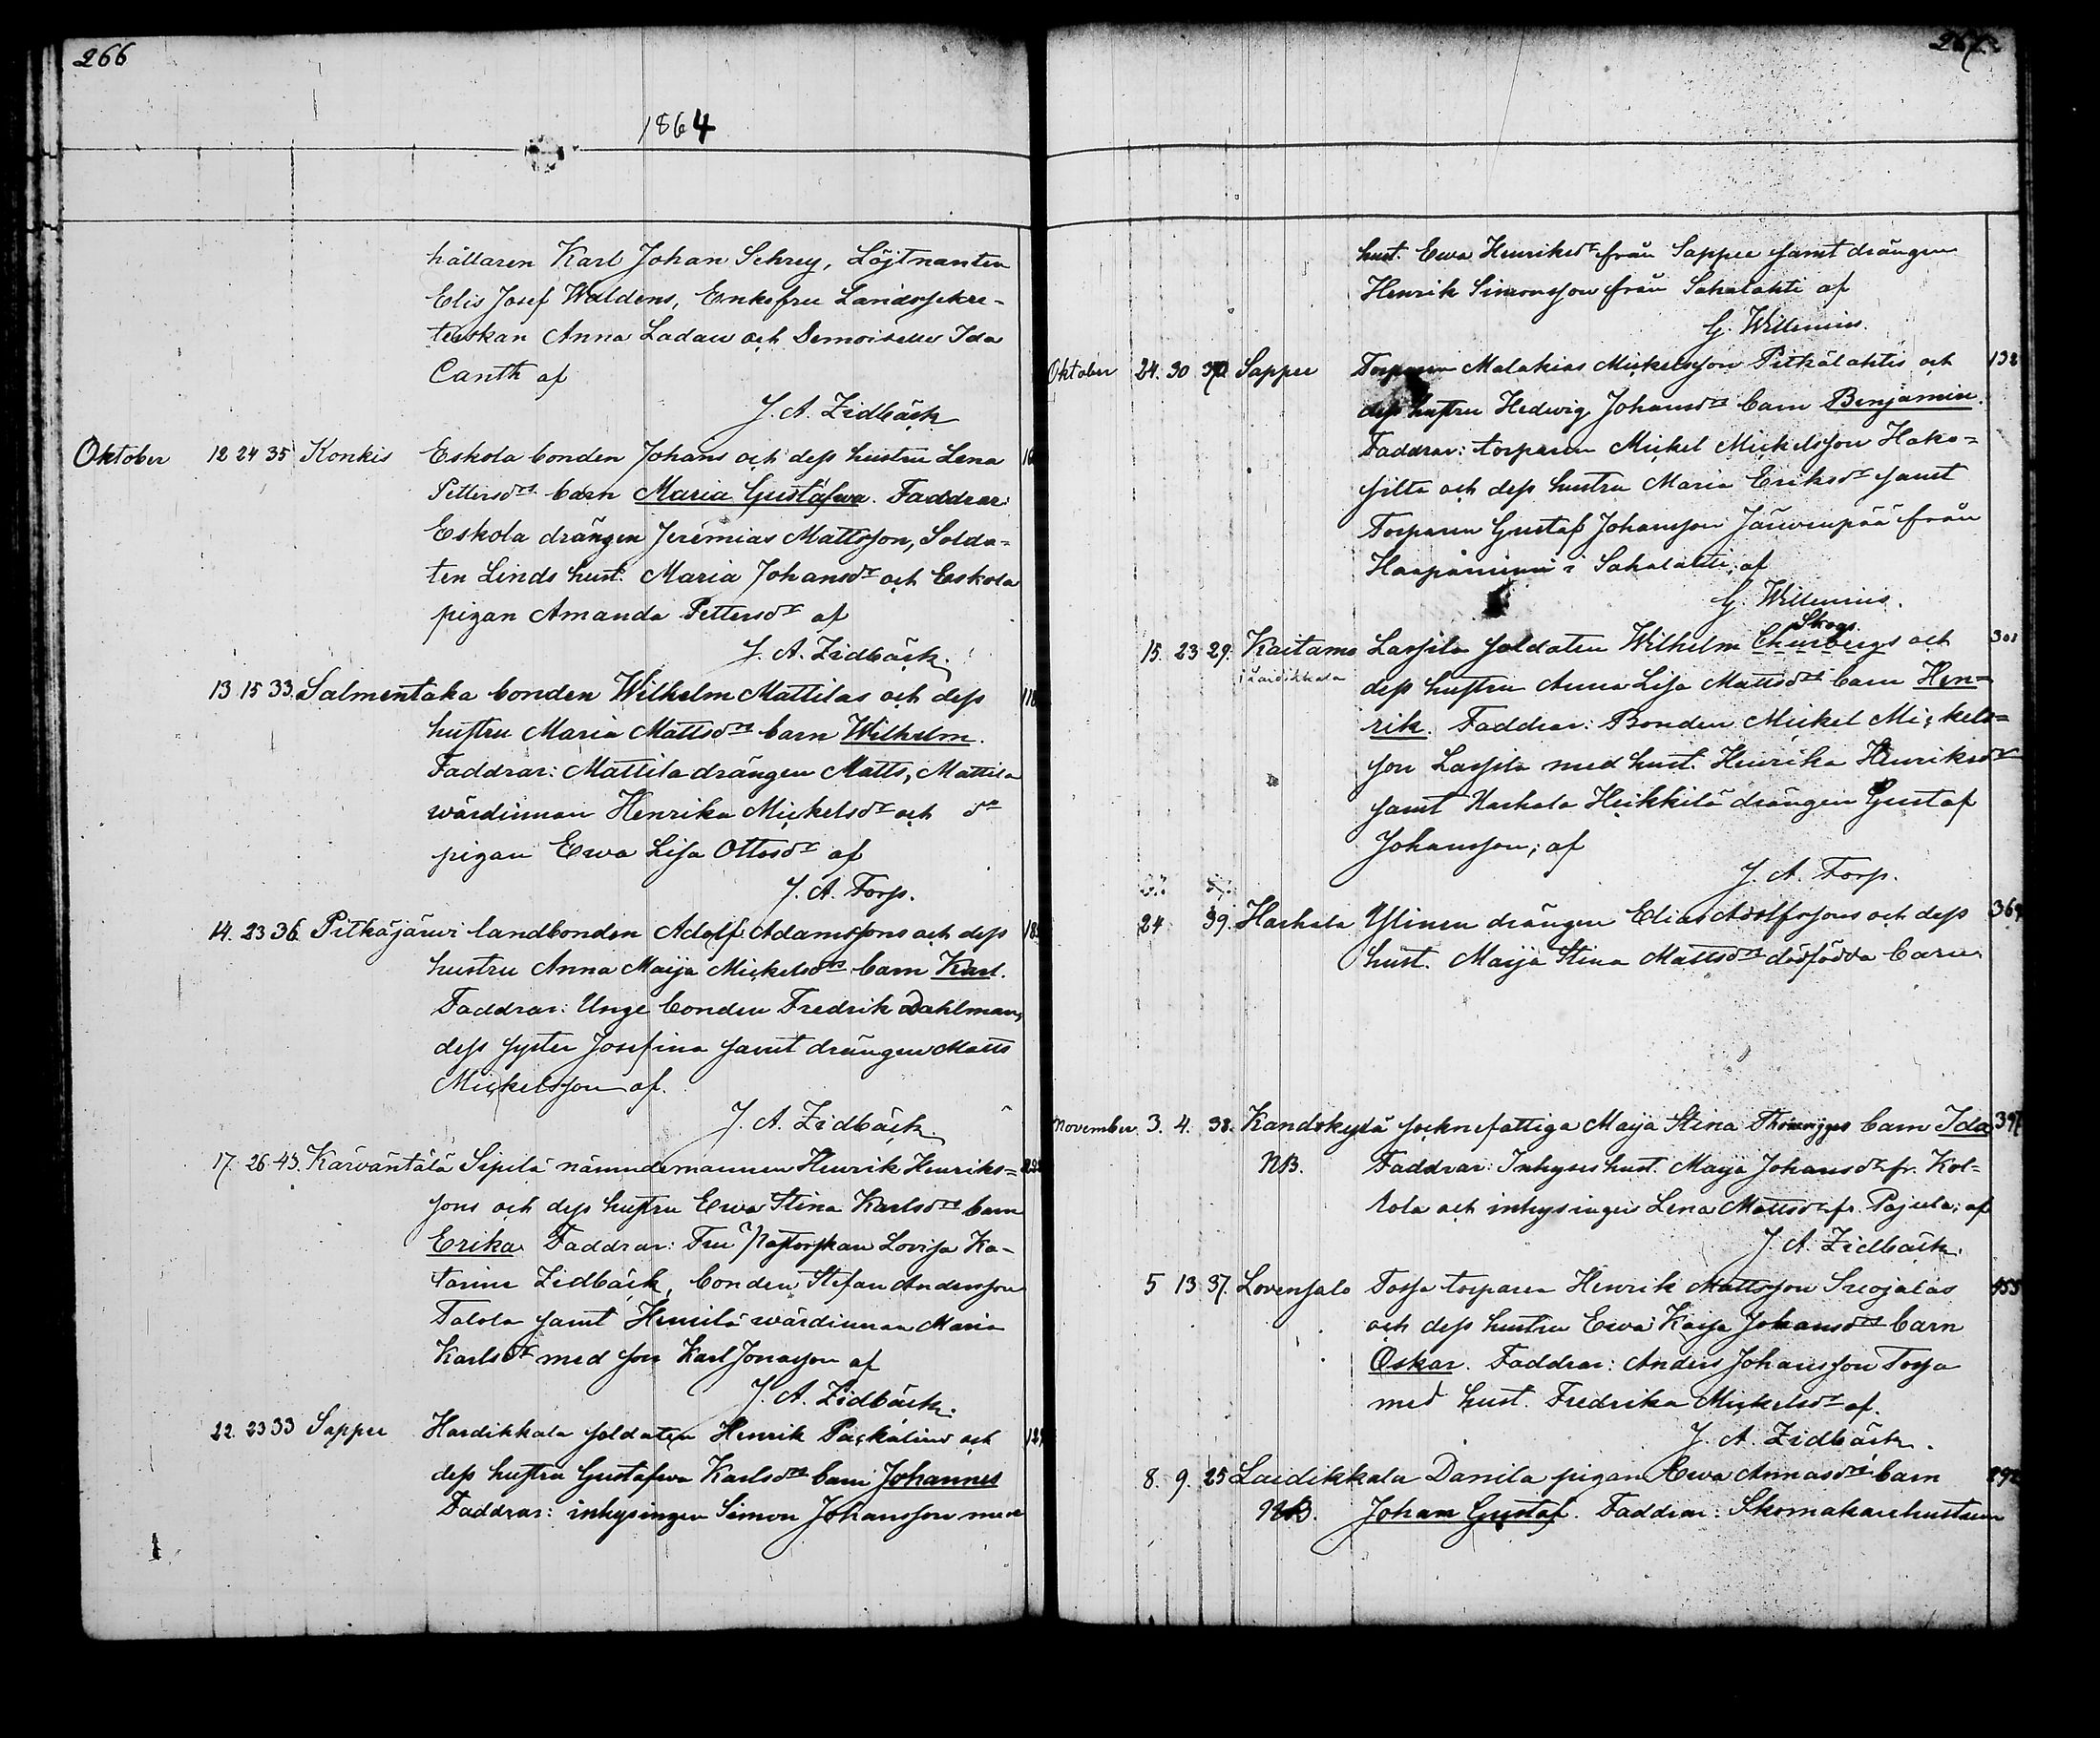 266
1864
hållaren Karl Johan Schrey, Löjtnanten
Elis Josef Waldens, Enkefru Landssekre-
terskan Anna Ladau och Demoiselle Ida
Canth af
J. A. Zidbäck
Oktober 12 24 35 Konkis Eskola bonden Johans och dess hustru Lena
Pettersdrs barn Maria Gustafwa. Faddrar:
Eskola drängen Jeremias Mattsson, Solda=
ten Linds hust. Maria Johansdr och Eskola
pigan Amanda Pettersdr af
J. A. Zidbäck.
13. 15 33. Salmentaka bonden Wilhelm Mattilas och dess
hustru Maria Mattsdrs barn Wilhelm.
Faddrar: Mattila drängen Matts, Mattila
wärdinnan Henrika Mickelsdr och do
pigan Ewa Lisa Ottosdr af
J. A. Forss.
14. 23 36. Pitkäjärwi landbonden Adolf Adamssons och dess
hustru Anna Maija Mickelsdrs barn Karl.
Faddrar: Unge bonden Fredrik Dahlman,
dess syster Josefina samt drängen Matts
Mickelsson af.
J. A. Zidbäck.
17. 26 43. Kärväntälä Sipilä nämndemannen Henrik Henriks=
sons och dess hustru Ewa Stina Karlsdrs barn
Erika. Faddrar: Fru Pastorskan Lovisa Ka-
tarina Zidbäck, bonden Stefan Andersson
Talola samt Heinilä wärdinnan Maria
Karlsdr med son Karl Jonasson af
J. A. Zidbäck.
22. 23 33 Sappee Hardikkala soldaten Henrik Packalins och
dess hustru Gustafwa Karlsdrs barn Johannes
Faddrar: inhysingen Simon Johansson med
267.
hust. Ewa Henriksdr från Sappee samt drängen
Henrik Simonsson från Sahalahti af
G. Willenius.
Oktober 24. 30 Sappee Torparen Malakias Mickelsson Pitkälahtis och 132
dess hustru Hedwig Johansdrs barn Benjamin.
Faddrar: torparen Mickel Mickelsson Hako=
silta och dess hustru Maria Eriksdr samt
Torparen Gustaf Johansson Järwenpää från
Haapaniemi i Sahalahti, af
G. Willenius.
Skogs
15. 23 29. Kaitamo Lassila soldaten Wilhelm Churbergs och 301
i Laidikkala dess hustru Anna Lisa Mattsdrs barn Hen=
rik. Faddrar: Bonden Mickel Mickels=
son Lassila med hust. Henrika Henriksdr
samt Harhala Heikkilä drängen Gustaf
Johansson; af
J. A. Forss.
24 39. Harhala Ylinen drängen Elias Adolfssons och dess 369
hust. Maija Stina Mattsdrs dödfödda barn.
November 3. 4. 38. Kandskylä socknefattiga Maija Stina barn Ida 397
NB. Faddrar: Inhyses hust. Maija Johansdr fr. Kol=
kola och inhysingen Lena Mattsdr fr. Pajula; af
J. A. Zidbäck.
5 13 37. Lovensalo Torja torparen Henrik Mattsson Suojalas 455
och dess hustru Ewa Kaija Johansdrs barn
Oskar. Faddrar: Anders Johansson Torja
med hust. Fredrika Mickelsdr af.
J. A. Zidbäck.
8. 9. 25 Laidikkala Danila pigan Ewa Annasdrs barn 292
NB. Johan Gustaf. Faddrar: Skomakarehustrun